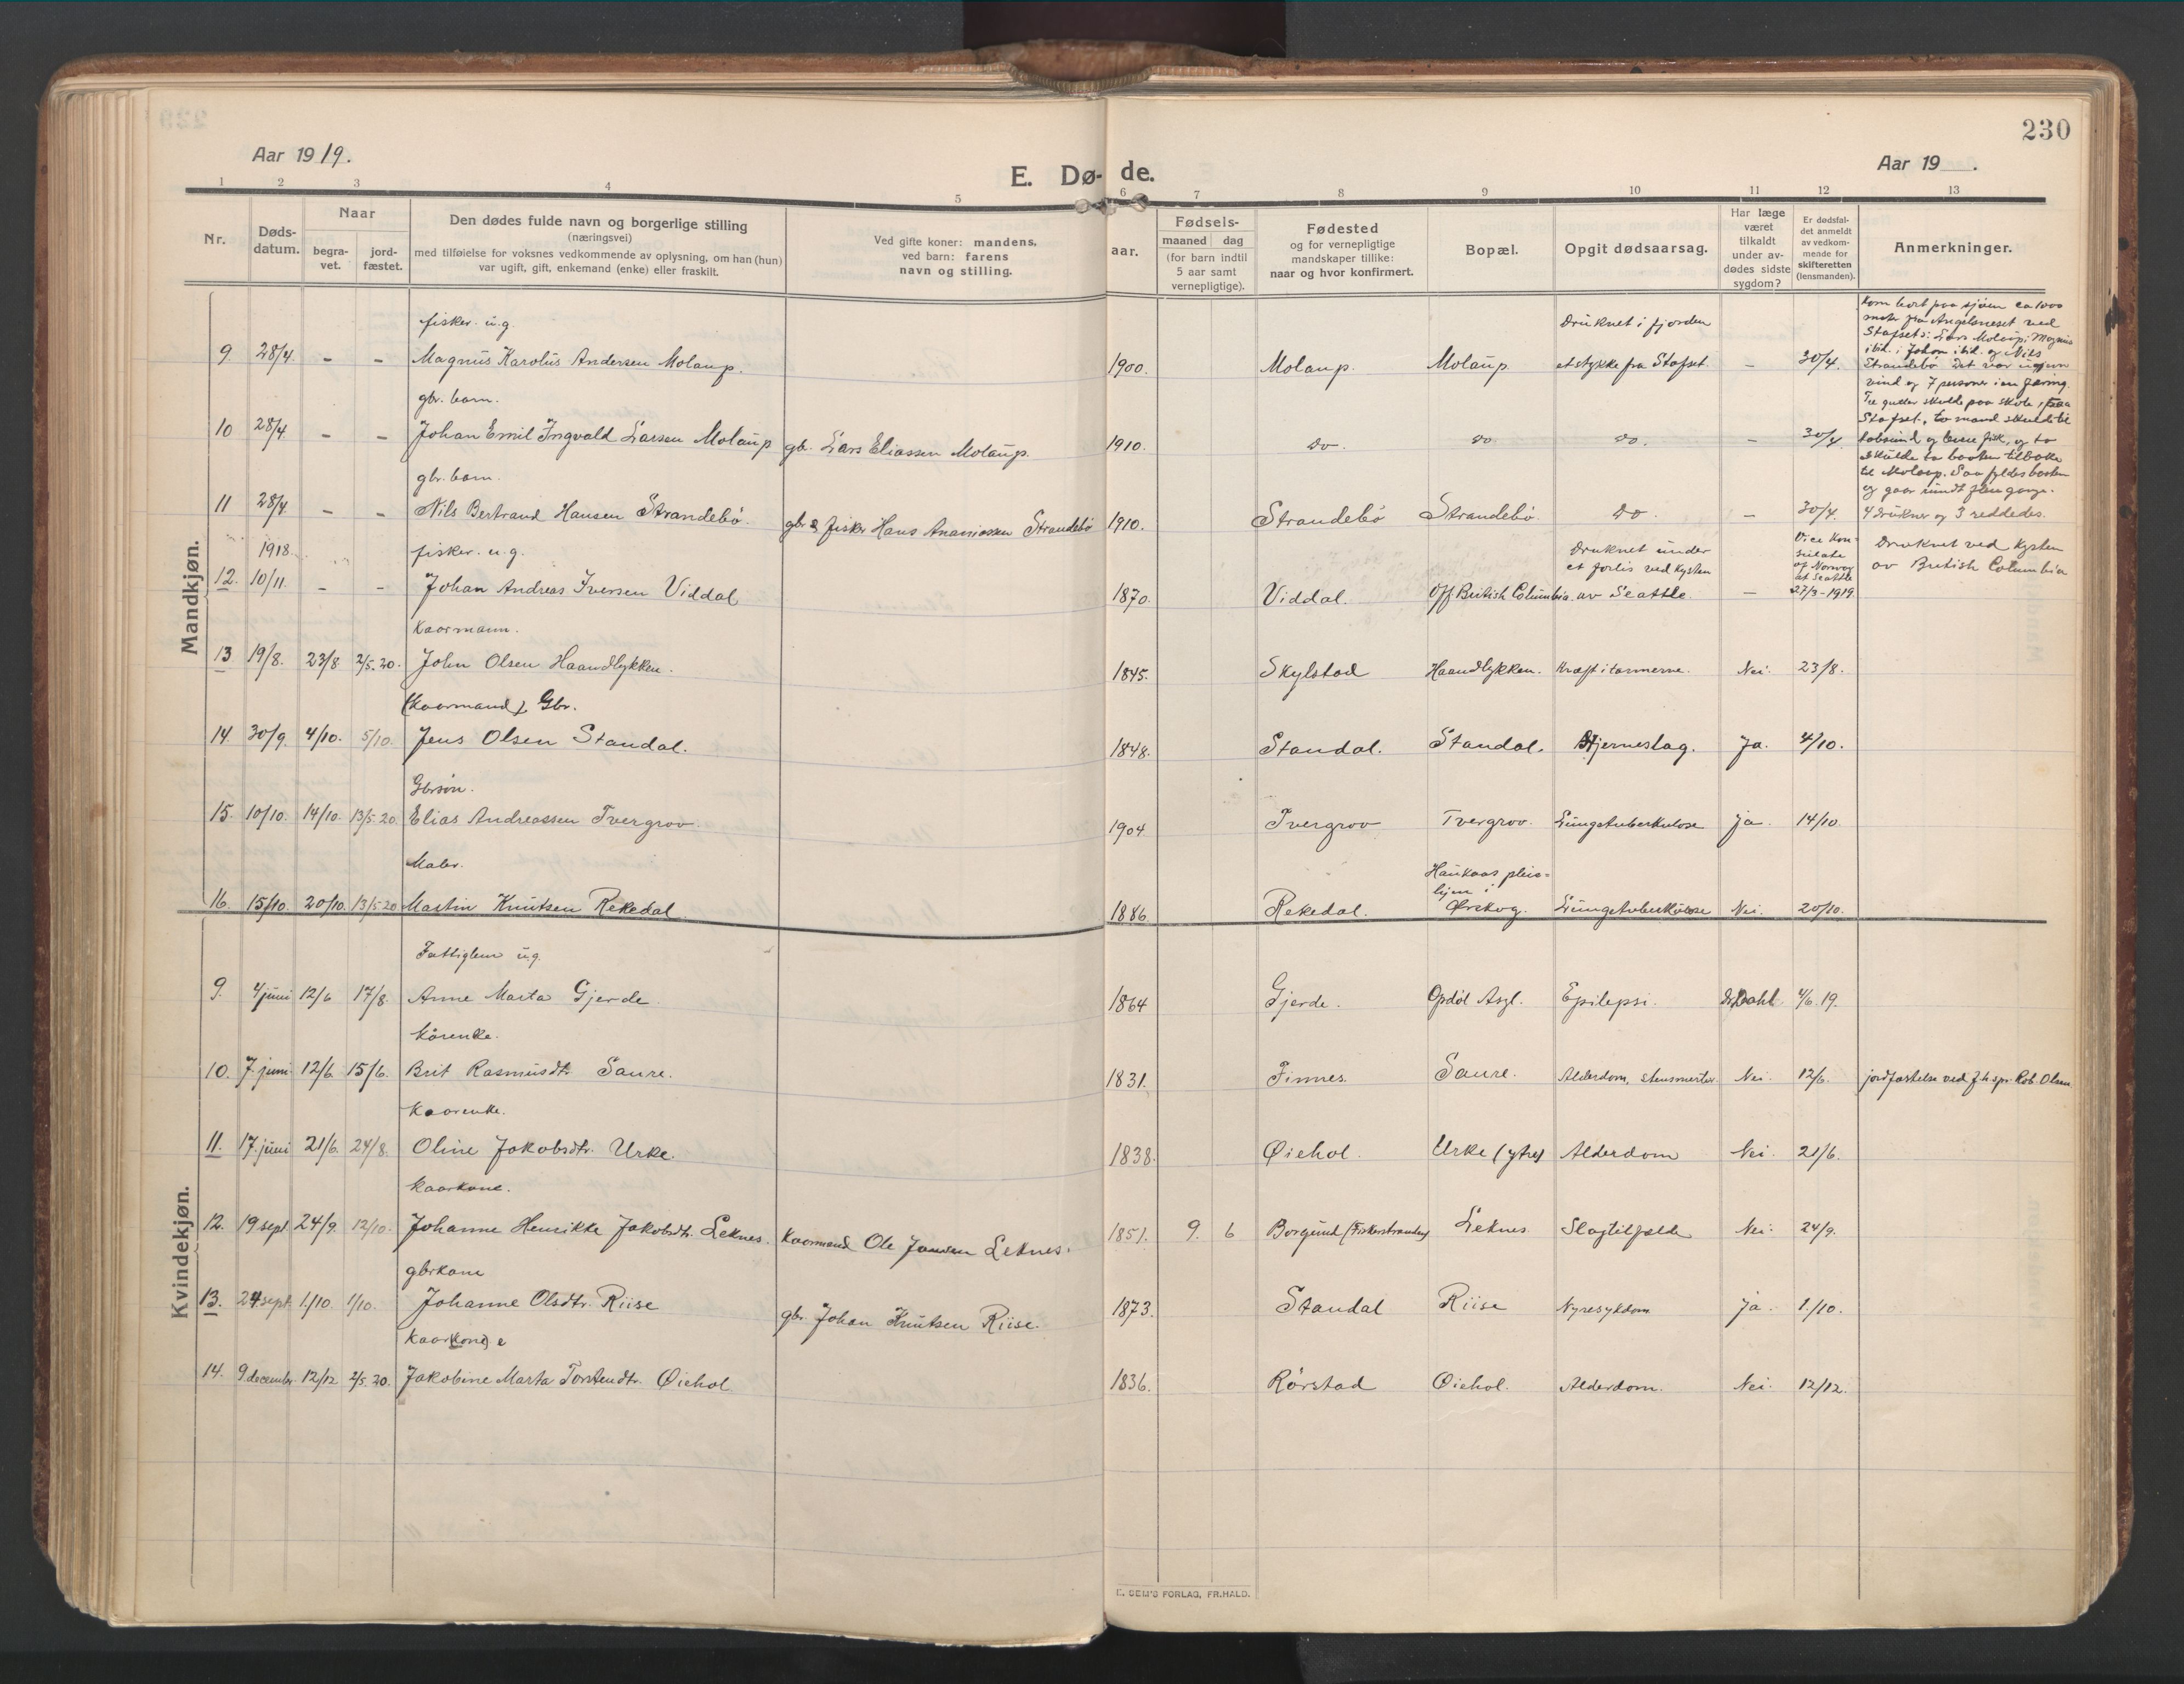 230
Aar 1919.
E. Dø- de.
Aar 19 .
1 2 3 4 5 6 7 8 9 10 11 12 13
Nr.
Døds-
datum.
Naar
begra-
vet.
jord-
fæstet.
Den dødes fulde navn og borgerlige stilling
(næringsvei)
med tilføielse for voksnes vedkommende av oplysning, om han (hun)
var ugift, gift, enkemand (enke) eller fraskilt.
Ved gifte koner: mandens,
ved barn: farens
navn og stilling.
aar.
Fødsels-
maaned dag
(for barn indtil
5 aar samt
vernepligtige).
Fødested
og for vernepligtige
mandskaper tillike:
naar og hvor konfirmert.
Bopæl.
Opgit dødsaarsag.
Har læge
været
tilkaldt
under av-
dødes sidste
sygdom?
Er dødsfal-
det anmeldt
av vedkom-
mende for
skifteretten
(lensmanden).
Anmerkninger.
Mandkjøn.
fisker. u.g. Druknet i fjorden
9 28/4. - - Magnus Karolus Andersen Molaup. 1900. Molaup. Molaup et stykke fra Stafset. - 30/4.
Kom bort paa sjøen ca 1000
meter fra ved
Stafset: Lars Molaup; Magnus
ibid.; Johan ibid. og Nils
Strandebø Det var ujevn
vind og 7 personer i en færing.
Tre gutter skulde paa skole,
Stafset, to mand skulde til
og levere fisk, og to
skulde ta baaten tilbake
til Molaup. Saa fyldes baaten
og gaar rundt flere gange.
4 drukner og 3 reddedes.
gbr. barn.
10 28/4. - - Johan Emil Ingvald Larsen Molaup gb. Lars Eliassen Molaup. 1910. do. do do. - 30/4.
gbr. barn.
11 28/4. - - Nils Bertrand Hansen Strandebø. gbr & fisker Hans Ananiassen Strandebø 1910. Strandebø Strandebø. do. - 30/4.
1918. fisker. u.g. Druknet under
et forlis ved Kysten
12. 10/11. - - Johan Andreas Iversen Viddal 1870. Viddal. Off British Columbia. av Seattle. -
Vice Kon-
sulate
of Norway
at Seattle
27/3-1919.
Druknet ved Kysten
av British Columbia
Kaarmann.
13 19/8. 23/8 2/5.20. John Olsen Haandlykken. 1845. Skylstad Haandlykken. Kræft i tarmerne. Nei. 23/8.
(Kaarmand) Gbr.
14. 30/9. 4/10. 5/10. Jens Olsen Standal. 1848. Standal. Standal. Hjerneslag. Ja. 4/10.
Gbrsøn.
15. 10/10. 14/10. 13/5.20. Elias Andreassen Tvergrov. 1904 Tvergrov Tvergrov. Lungetuberkulose ja. 14/10.
Maler.
16. 15/10. 20/10. 13/5 20 Martin Knutsen Rekedal 1886. Rekedal.
Haukaas pleie-
hjem i
Ørskog. Lungetuberkulose Nei. 20/10.
Kvindekjøn.
Fattiglem u.g.
9. 4 juni 12/6 17/8. Anne Marta Gjerde. 1864 Gjerde. Opdøl Asyl. Epilepsi. Dr. Dahl. 4/6.19.
Kårenke.
10. 7. juni 12/6 15/6. Brit Rasmusdtr Saure. 1831. Finnes. Saure. Alderdom, Nei. 12/6. jordfæstelse ved Rob. Olsen
Kaarenke.
11. 17. juni 21/6. 24/8. Oline Jakobsdtr. Urke. 1838. Øiehol. Urke (ytre) Alderdom Nei. 21/6.
Kaarkone.
12. 19 sept. 24/9. 12/10. Johanne Henrikke Jakobsdtr. Leknes. Kaarmand Ole Jansen Leknes. 1851. 9. 6 Borgund (Fiskerstranden) Leknes. Slagtilfælde Nei. 24/9.
gbrkone
13. 24 sept. 1./10 1/10. Johanne Olsdtr. Riise gbr. Johan Knutsen Riise. 1873. Standal Riise Nyresykdom ja. 1./10.
Kaar(kone) e
14. 9 december. 12/12 2/5.20. Jakobine Marta Torstendtr. Øiehol 1836. Rørstad Øiehol. Alderdom. Nei. 12/12.
E. SEM'S FORLAG, FR.HALD.